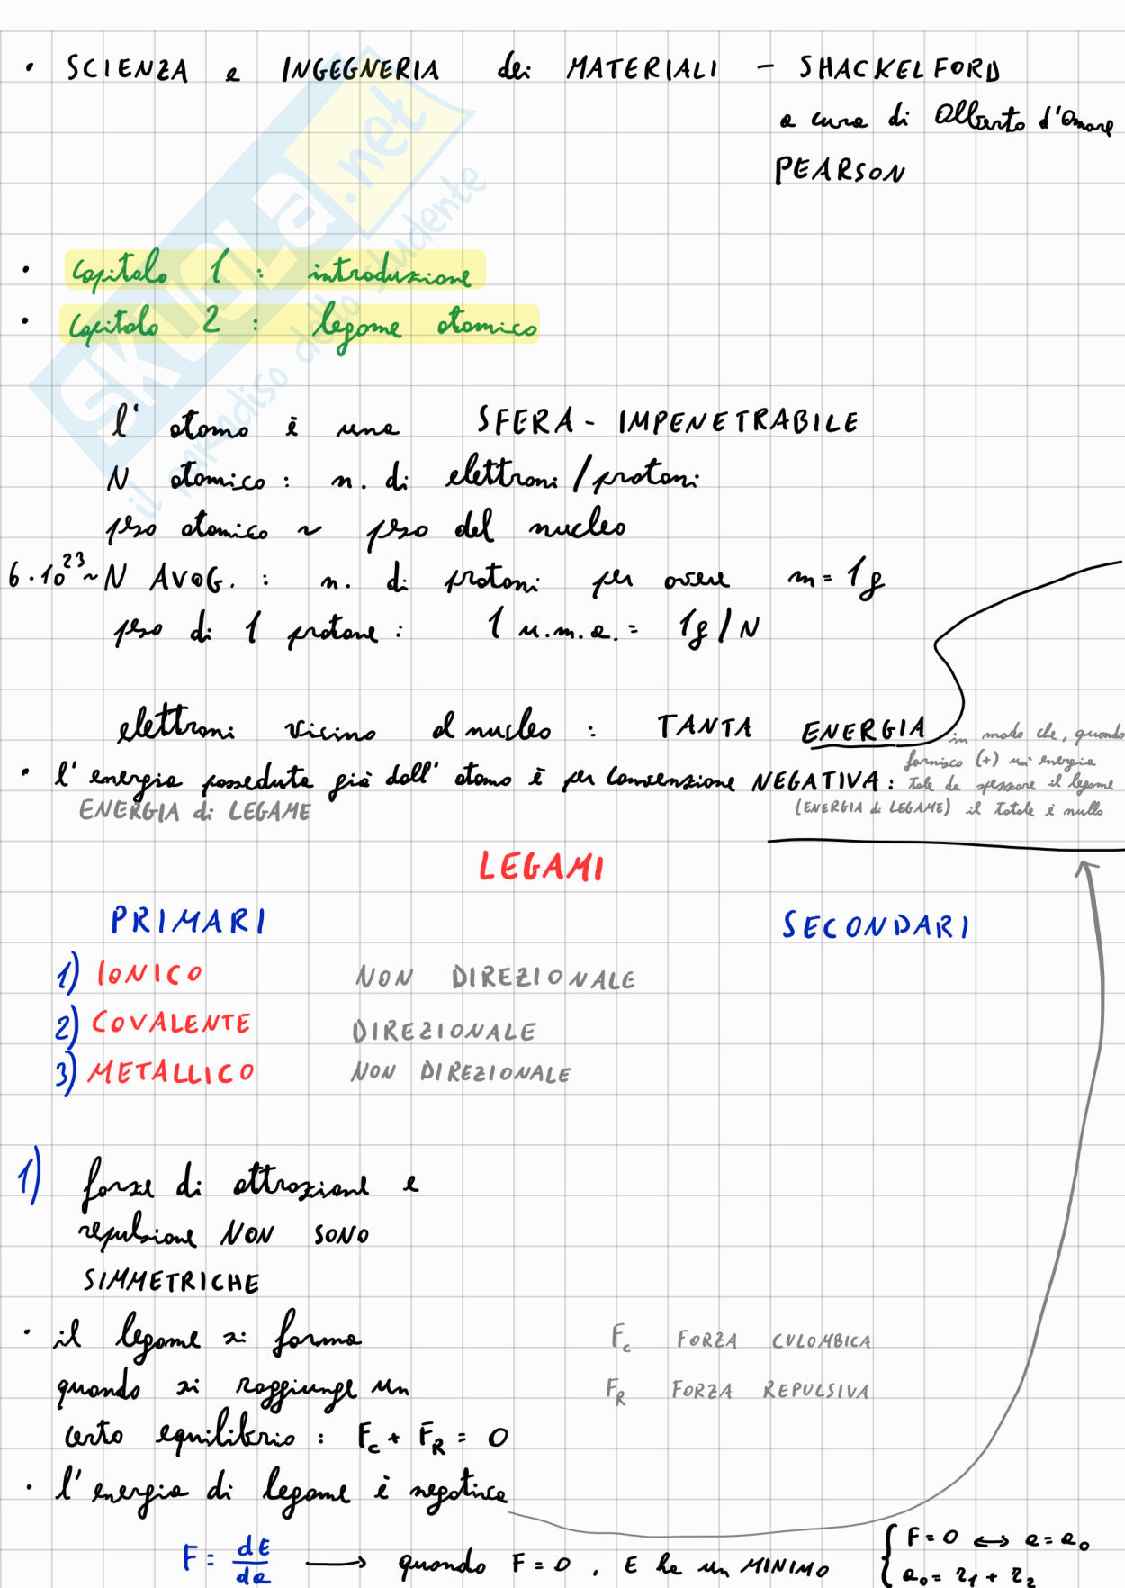 • SCIENZA e INGEGNERIA dei MATERIALI - SHACKELFORD
a cura di Alberto d'Amore
PEARSON
• Capitolo 1 : introduzione
• Capitolo 2 : legame atomico
l' atomo è una SFERA - IMPENETRABILE
N atomico : n. di elettroni / protoni
peso atomico ~ peso del nucleo
6·10²³ ~ N AVOG. : n. di protoni per avere m = 1g
peso di 1 protone : 1 u.m.a. = 1g / N
elettroni vicino al nucleo : TANTA ENERGIA
• l' energia posseduta già dall' atomo è per convenzione NEGATIVA :
in modo che, quando
fornisco (+) un' energia
tale da spezzare il legame
(ENERGIA di LEGAME) il totale è nullo
ENERGIA di LEGAME
LEGAMI
PRIMARI SECONDARI
1) IONICO NON DIREZIONALE
2) COVALENTE DIREZIONALE
3) METALLICO NON DIREZIONALE
1) forze di attrazione e
repulsione NON SONO
SIMMETRICHE
• il legame si forma
quando si raggiunge un
certo equilibrio : Fc + FR = 0
Fc FORZA CULOMBICA
FR FORZA REPULSIVA
• l' energia di legame è negativa
F = dE/da → quando F = 0 , E ha un MINIMO
{ F = 0 ↔ a = a₀
a₀ = r₁ + r₂
SKUOLA.net
il paradiso dello studente